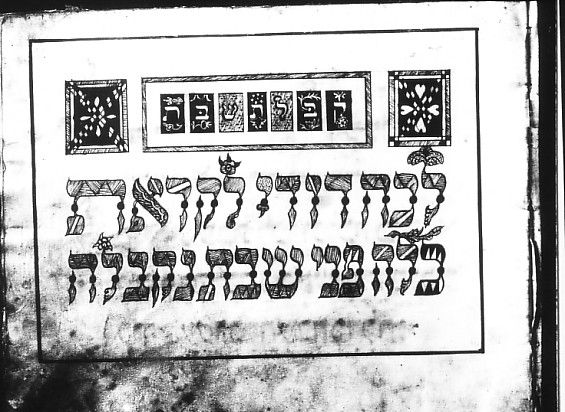 קבלת שבת
לכה דודי לקראת
כלה פני שבת נקבלה